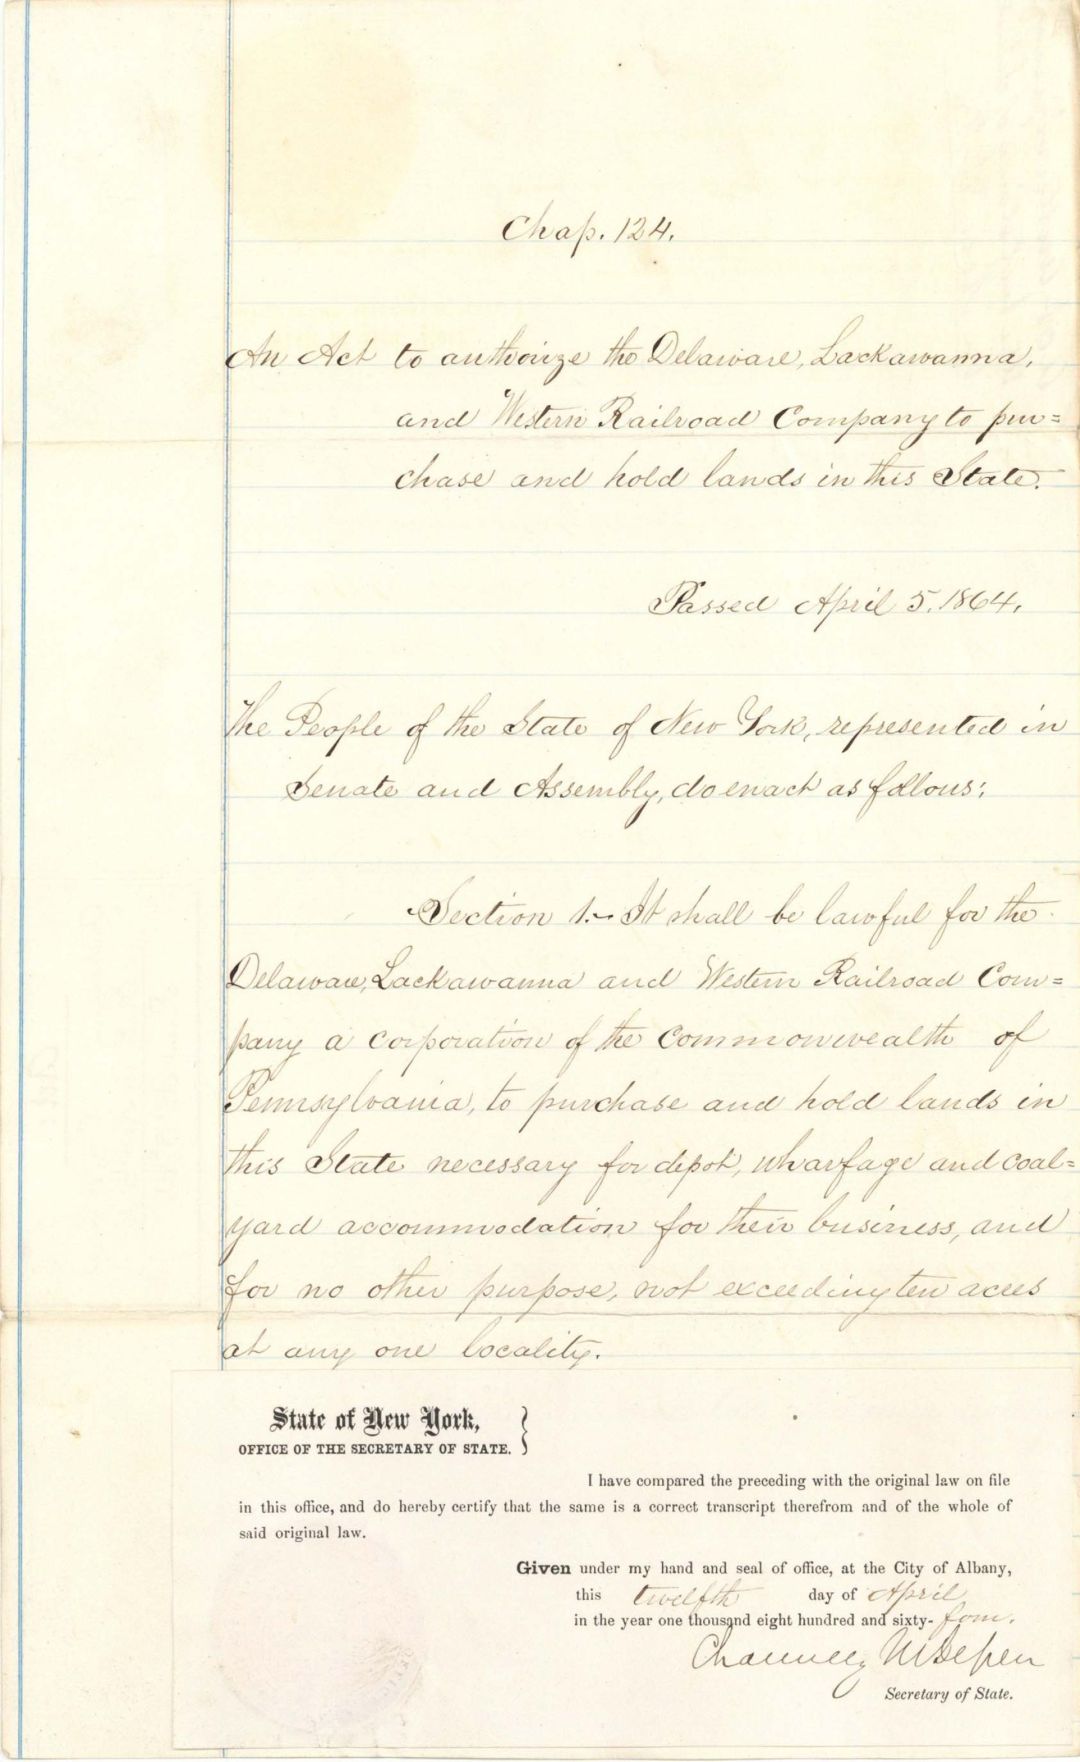 Chap. 124.
An Act to authorize the Delaware, Lackawanna,
and Western Railroad Company to pur=
chase and hold lands in this State.
Passed April 5. 1864.
The People of the State of New York, represented in
Senate and Assembly, do enact as follows:
Section 1.- It shall be lawful for the
Delaware, Lackawanna and Western Railroad Com=
pany a corporation of the Commonwealth of
Pennsylvania, to purchase and hold lands in
this State necessary for depot, wharfage and coal=
yard accommodation for their business, and
for no other purpose, not exceeding ten acres
at any one locality.
State of New York,
OFFICE OF THE SECRETARY OF STATE. }
I have compared the preceding with the original law on file
in this office, and do hereby certify that the same is a correct transcript therefrom and of the whole of
said original law.
Given under my hand and seal of office, at the City of Albany,
this twelfth day of April
in the year one thousand eight hundred and sixty- four.
Chauncey M Depew
Secretary of State.